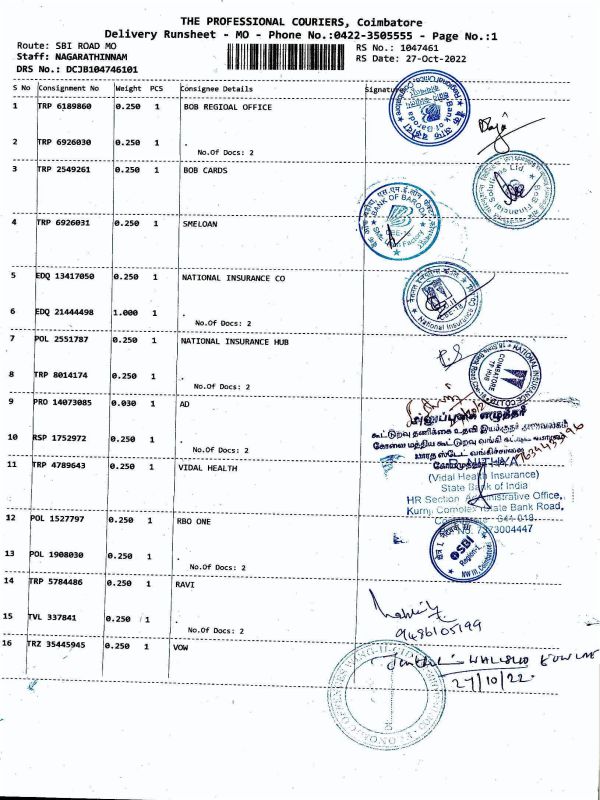 THE PROFESSIONAL COURIERS, Coimbatore
Delivery Runsheet - MO - Phone No.:0422-3505555 - Page No.:1
Route: SBI ROAD MO
RS No.: 1047461
Staff: NAGARATHINNAM
RS Date: 27-Oct-2022
DRS No.: DCJB104746101
S No Consignment No Weight PCS Consignee Details Signature
1 TRP 6189860 0.250 1 BOB REGIOAL OFFICE
2 TRP 6926030 0.250 1 .
No.Of Docs: 2
3 TRP 2549261 0.250 1 BOB CARDS
4 TRP 6926031 0.250 1 SMELOAN
BANK OF BARODA
5 EDQ 13417050 0.250 1 NATIONAL INSURANCE CO
National Insurance Co.
6 EDQ 21444498 1.000 1 .
No.Of Docs: 2
7 POL 2551787 0.250 1 NATIONAL INSURANCE HUB
COIMBATORE
8 TRP 8014174 0.250 1 .
No.Of Docs: 2
9 PRO 14073085 0.030 1 AD
கூட்டுறவு தணிக்கை உதவி இயக்குநர் அலுவலகம்
10 RSP 1752972 0.250 1 .
No.Of Docs: 2
11 TRP 4789643 0.250 1 VIDAL HEALTH
(Vidal Health Insurance)
State Bank of India
HR Section Administrative Office,
State Bank Road,
12 POL 1527797 0.250 1 RBO ONE
SBI
13 POL 1908030 0.250 1 .
No.Of Docs: 2
14 TRP 5784486 0.250 1 RAVI
15 TVL 337841 0.250 1 .
No.Of Docs: 2
9486105199
16 TRZ 35445945 0.250 1 VOW
27/10/22